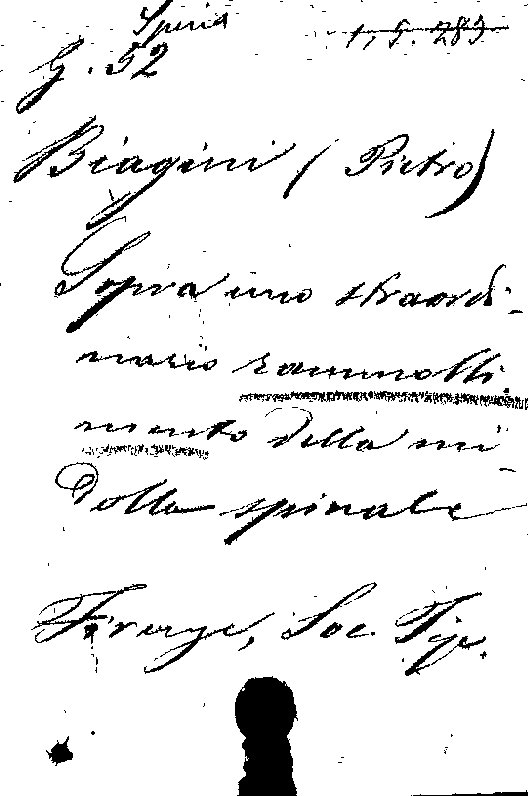 Speria
1, 5. 283
G. 52
Biagini (Pietro)
Sopra uno straordi-
nario rammolli-
mento della mi-
dolla spinale
Firenze, Soc. Tip.